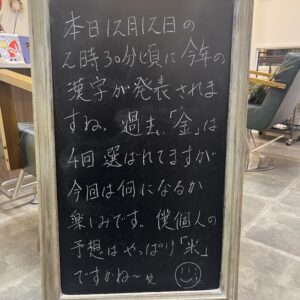 本日12月12日の
14時30分頃に今年の
漢字が発表されま
すね。過去、「金」は
4回選ばれてますが
今回は何になるか
楽しみです。僕個人の
予想はやっぱり「米」
ですかね〜笑